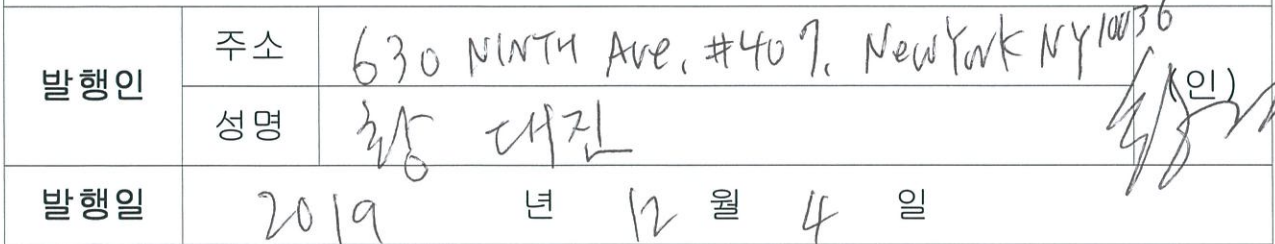 발행인
주소 630 NINTH Ave. #407. New York NY 10036
성명 황 대진 (인)
발행일 2019 년 12 월 4 일